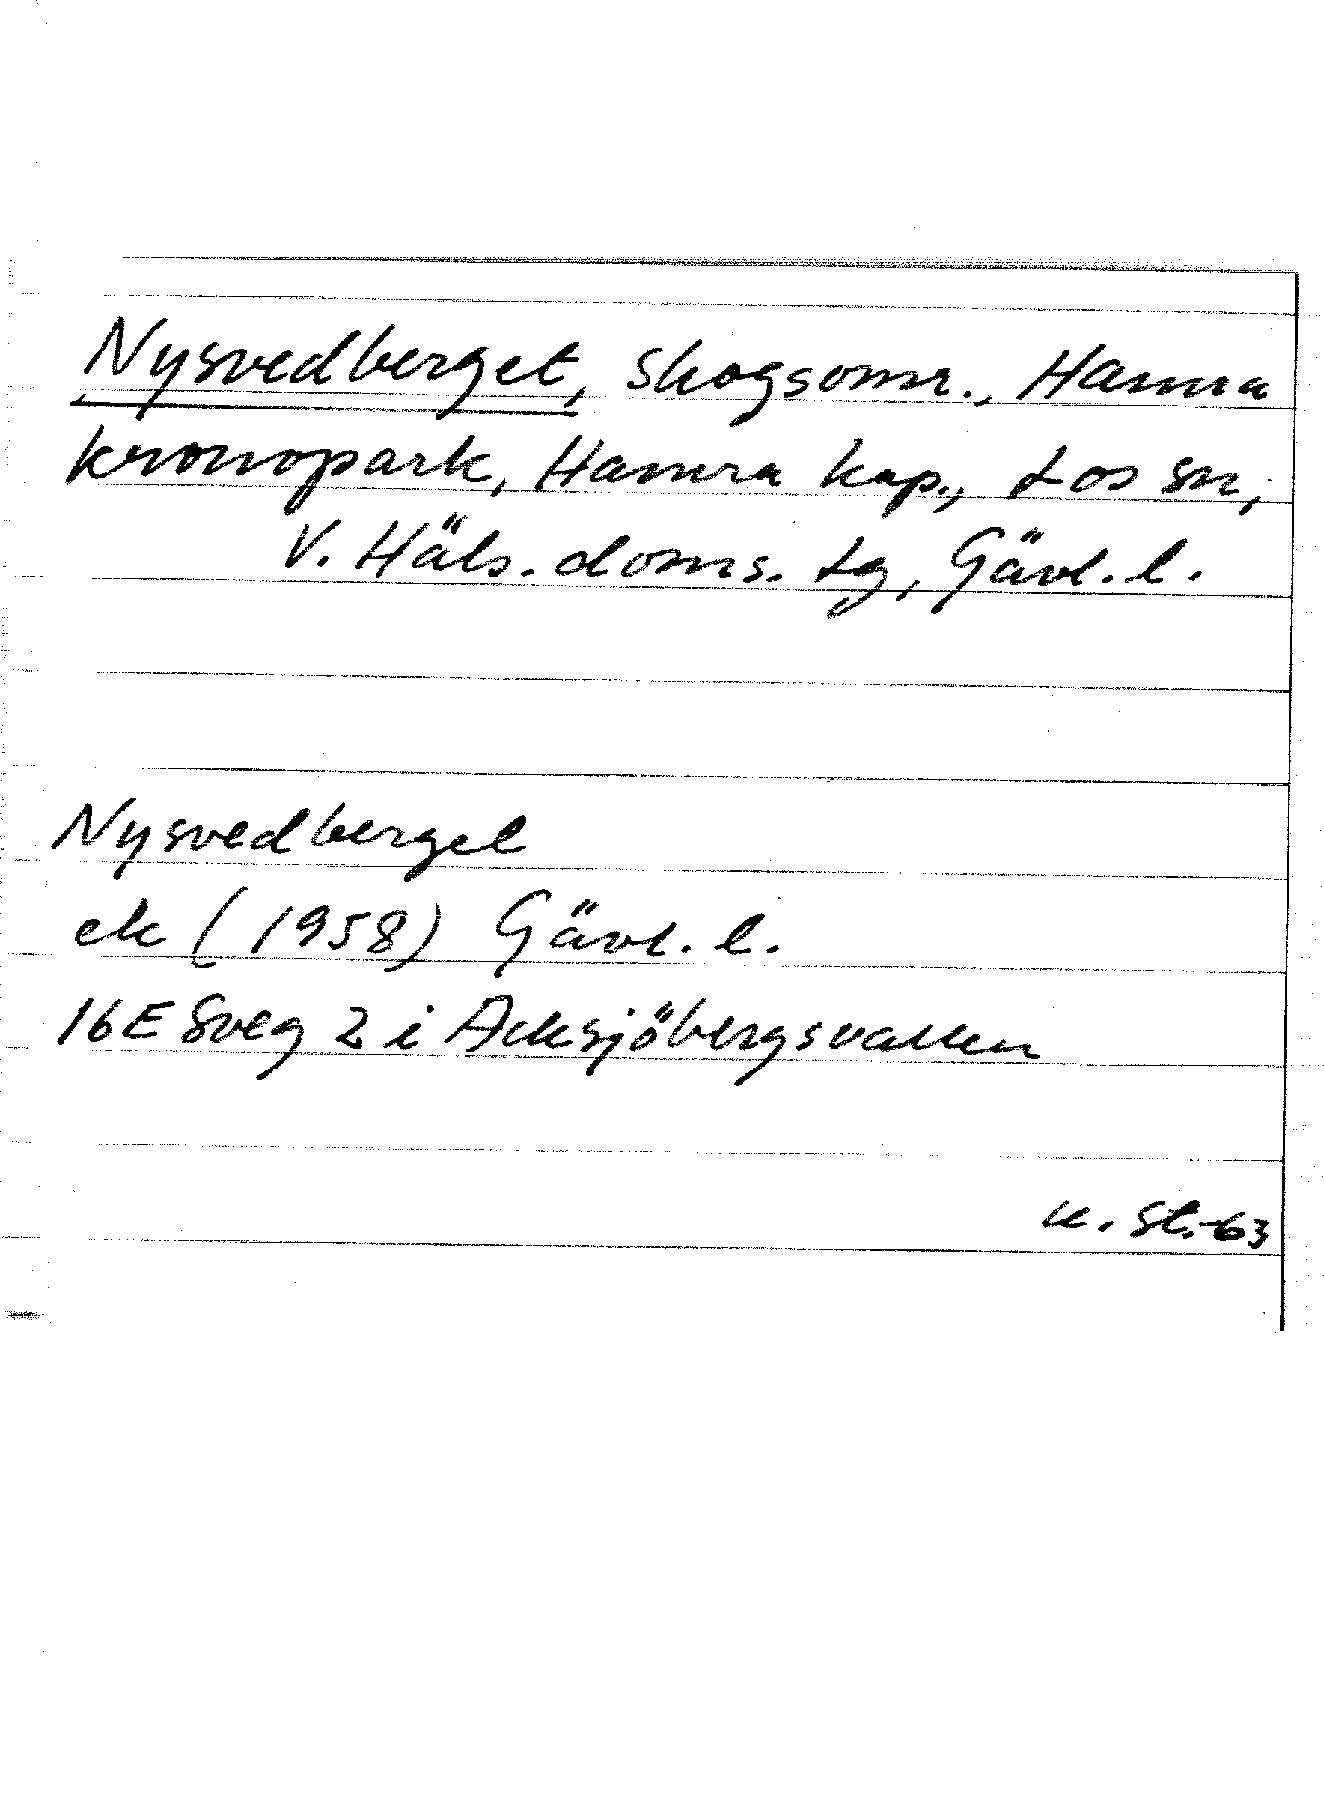 Nysvedberget, skogsomr., Hamra
kronopark, Hamra kap., Los sn,
V. Häls. doms. tg, Gävl. l.
Nysvedberget
ek (1958) Gävl. l.
16E Sveg 2 i Acksjöbergsvallen
St.-63